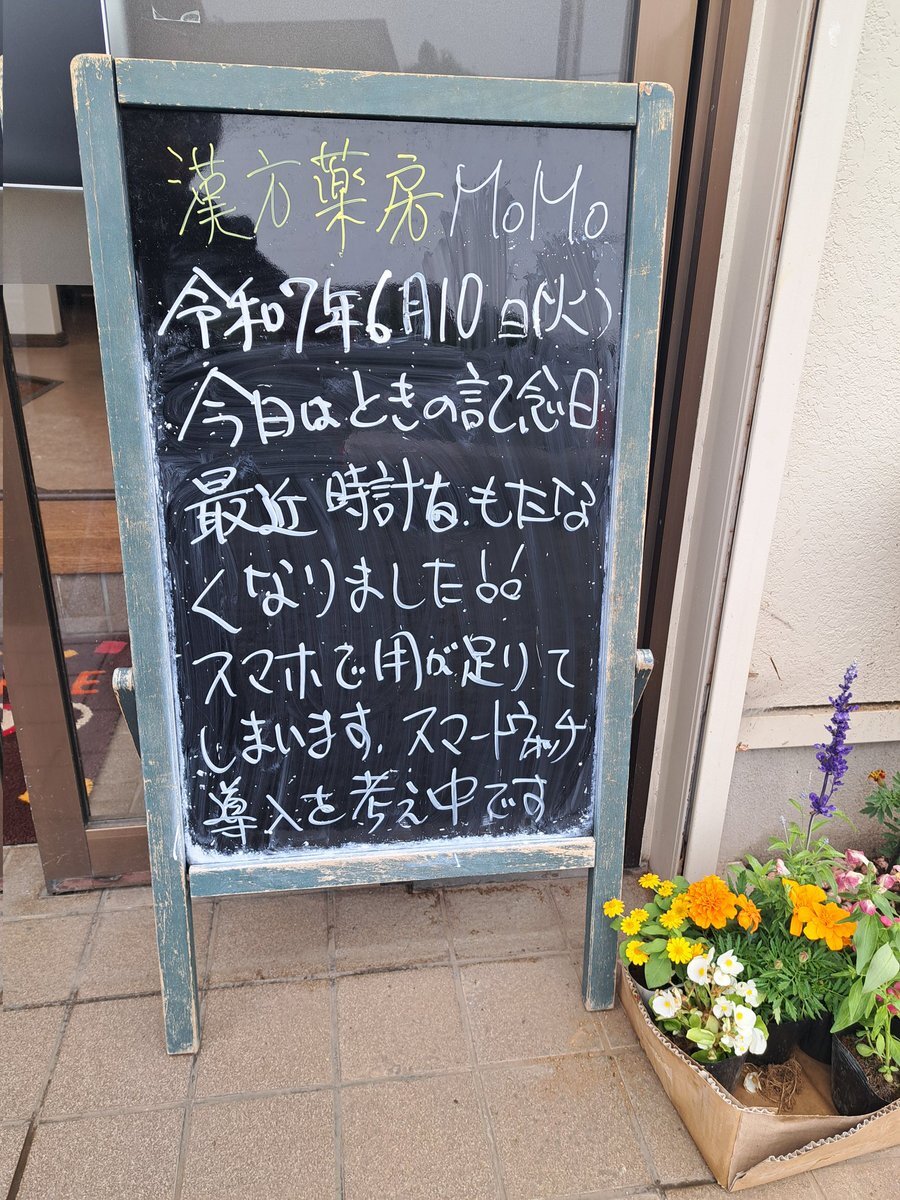 漢方薬房 MoMo
令和7年6月10日(火)
今日はときの記念日
最近時計を.もたな
くなりました!!
スマホで用が足りて
しまいます.スマートウォッチ
導入を考え中です